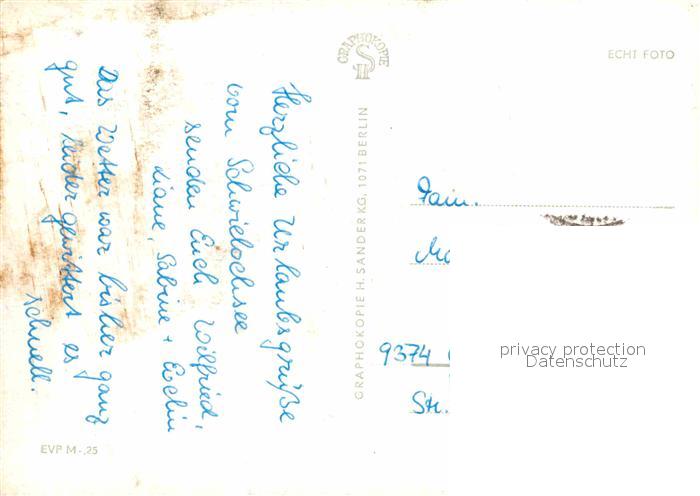 Herzliche Urlaubsgrüße
vom Schwielochsee
senden Euch Wilfried,
Liane, Sabine + Evelin
Das Wetter war bisher ganz
gut, leider gewittert es
schnell.
EVP M -,25
GRAPHOKOPIE
GRAPHOKOPIE H. SANDER KG, 1071 BERLIN
ECHT FOTO
Fam.
9374
Str.
privacy protection
Datenschutz